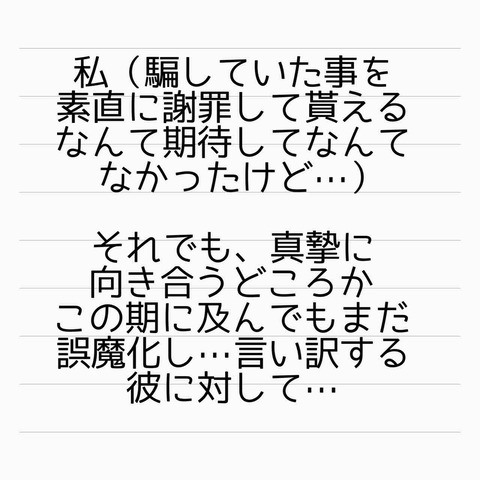 私（騙していた事を
素直に謝罪して貰える
なんて期待してなんて
なかったけど…）
それでも、真摯に
向き合うどころか
この期に及んでもまだ
誤魔化し…言い訳する
彼に対して…